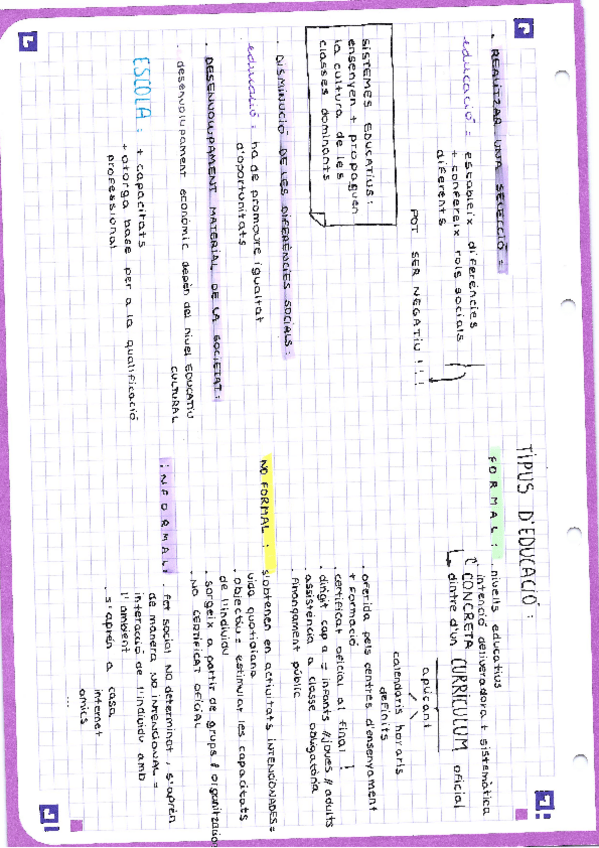 . REALITZAR UNA SELECCIÓ =
educació = estableix diferències
+ confereix rols socials
diferents
POT SER NEGATIU !!!
SISTEMES EDUCATIUS:
ensenyen + propaguen
la cultura de les
classes dominants
. DISMINUCIÓ DE LES DIFERÈNCIES SOCIALS:
educació: ha de promoure igualtat
d'oportunitats
. DESENVOLUPAMENT MATERIAL DE LA SOCIETAT:
. desenvolupament econòmic depèn del nivell EDUCATIU
CULTURAL
ESCOLA: + capacitats
+ otorga base per a la qualificació
professional
TIPUS D'EDUCACIÓ:
FORMAL: . nivells educatius
. intenció deliveradora + sistemàtica
CONCRETA
dintre d'un CURRICULUM oficial
aplicant
calendaris horaris
definits
. oferida pels centres d'ensenyament
+ Formació
. certificat oficial al final !
. dirigit cap a = infants // joves // adults
. assistència a classe obligatòria
. finançament públic
NO FORMAL: s'obtenen en activitats INTENCIONADES =
vida quotidiana
. objectiu = estimular les capacitats
de l'individu
. sorgeix a partir de grups // organitzacions
. NO CERTIFICAT OFICIAL
INFORMAL: . fet social NO determinat, s'aprèn
de manera NO INTENCIONAL =
interacció de l'individu amb
l'ambient
. s'aprèn a casa
internet
amics
...